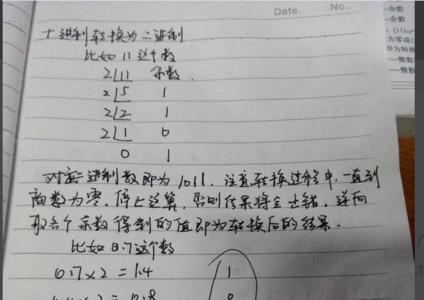 Date. No.
十进制转换为二进制
比如 11 这个数
2|11 余数
2|5 1
2|2 1
2|1 0
0 1
对应二进制数即为1011. 注意转换过程中,一直到
商数为零,停止运算,否则结果将会出错,逆向
取各个余数得到的值即为转换后的结果.
比如0.7这个数
0.7×2=1.4 1